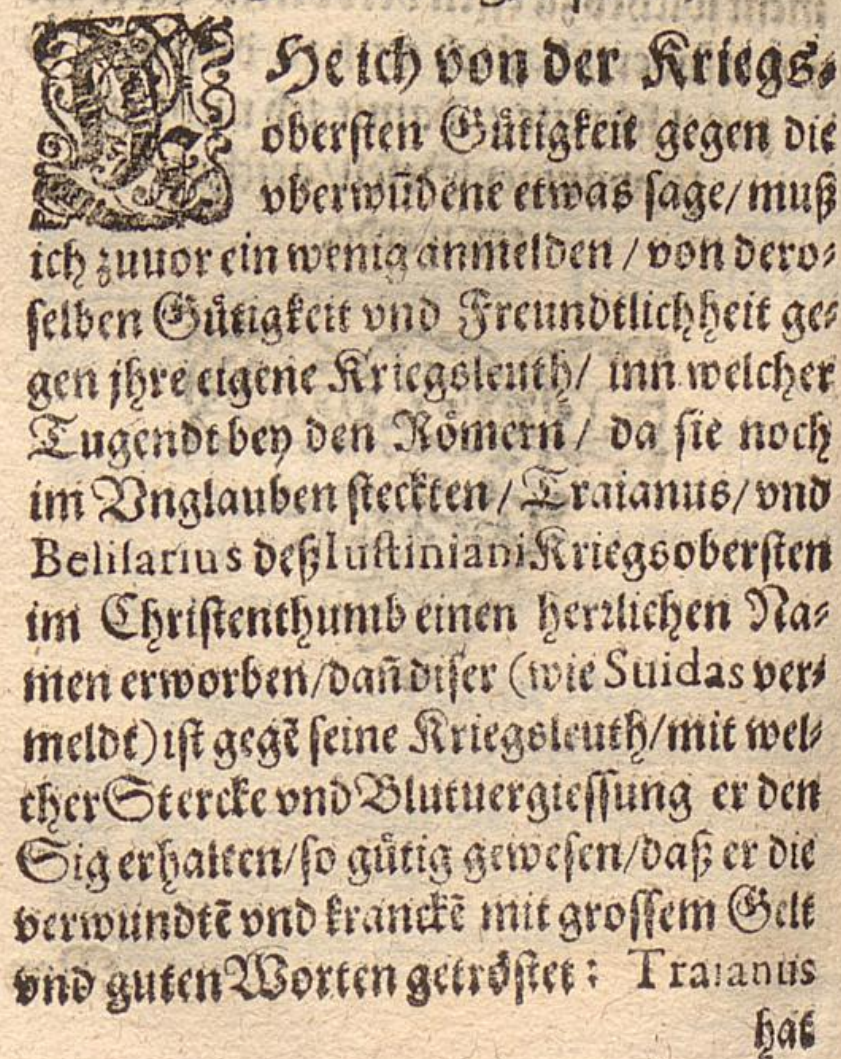 EHe ich von der Kriegs⸗
obersten Gütigkeit gegen die
vberwũdene etwas sage/ muß
ich zuuor ein wenig anmelden / von dero⸗
selben Gütigkeit vnd Freundtlichheit ge⸗
gen jhre eigene Kriegsleuth/ inn welcher
Tugendt bey den Römern / da sie noch
im Vnglauben steckten / Traianus/ vnd
Belisarius deß Iustiniani Kriegsobersten
im Christenthumb einen herꝛlichen Na⸗
men erworben/ dañ diser (wie Suidas ver⸗
meldt) ist gegẽ seine Kriegsleuth/ mit wel⸗
cher Stercke vnd Blutuergiessung er den
Sig erhalten/ so gütig gewesen/ daß er die
verwundtẽ vnd kranckẽ mit grossem Gelt
vnd guten Worten getröstet : Traianus
hat